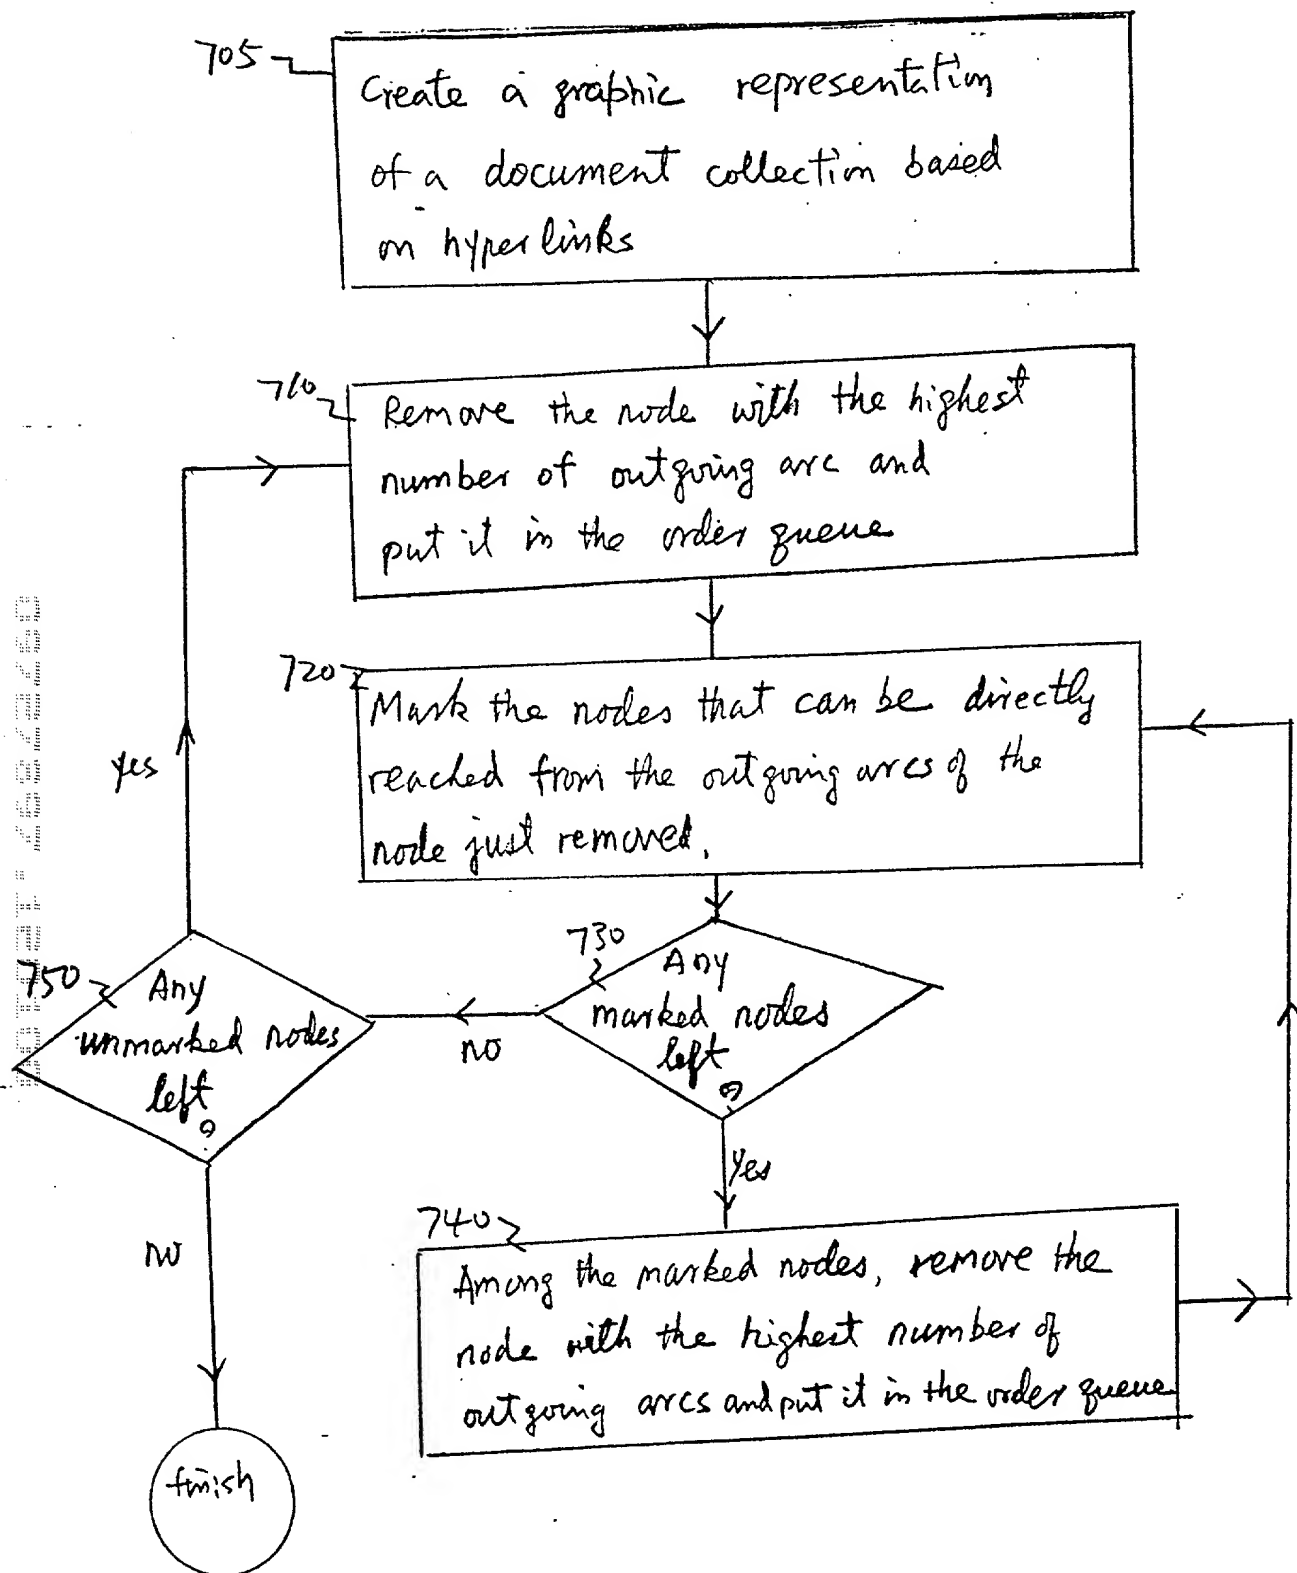 705
Create a graphic representation
of a document collection based
on hyperlinks
710
Remove the node with the highest
number of outgoing arc and
put it in the order queue
720
Mark the nodes that can be directly
reached from the outgoing arcs of the
node just removed.
yes
730
Any
marked nodes
left?
no
750
Any
unmarked nodes
left?
Yes
no
740
Among the marked nodes, remove the
node with the highest number of
outgoing arcs and put it in the order queue
finish